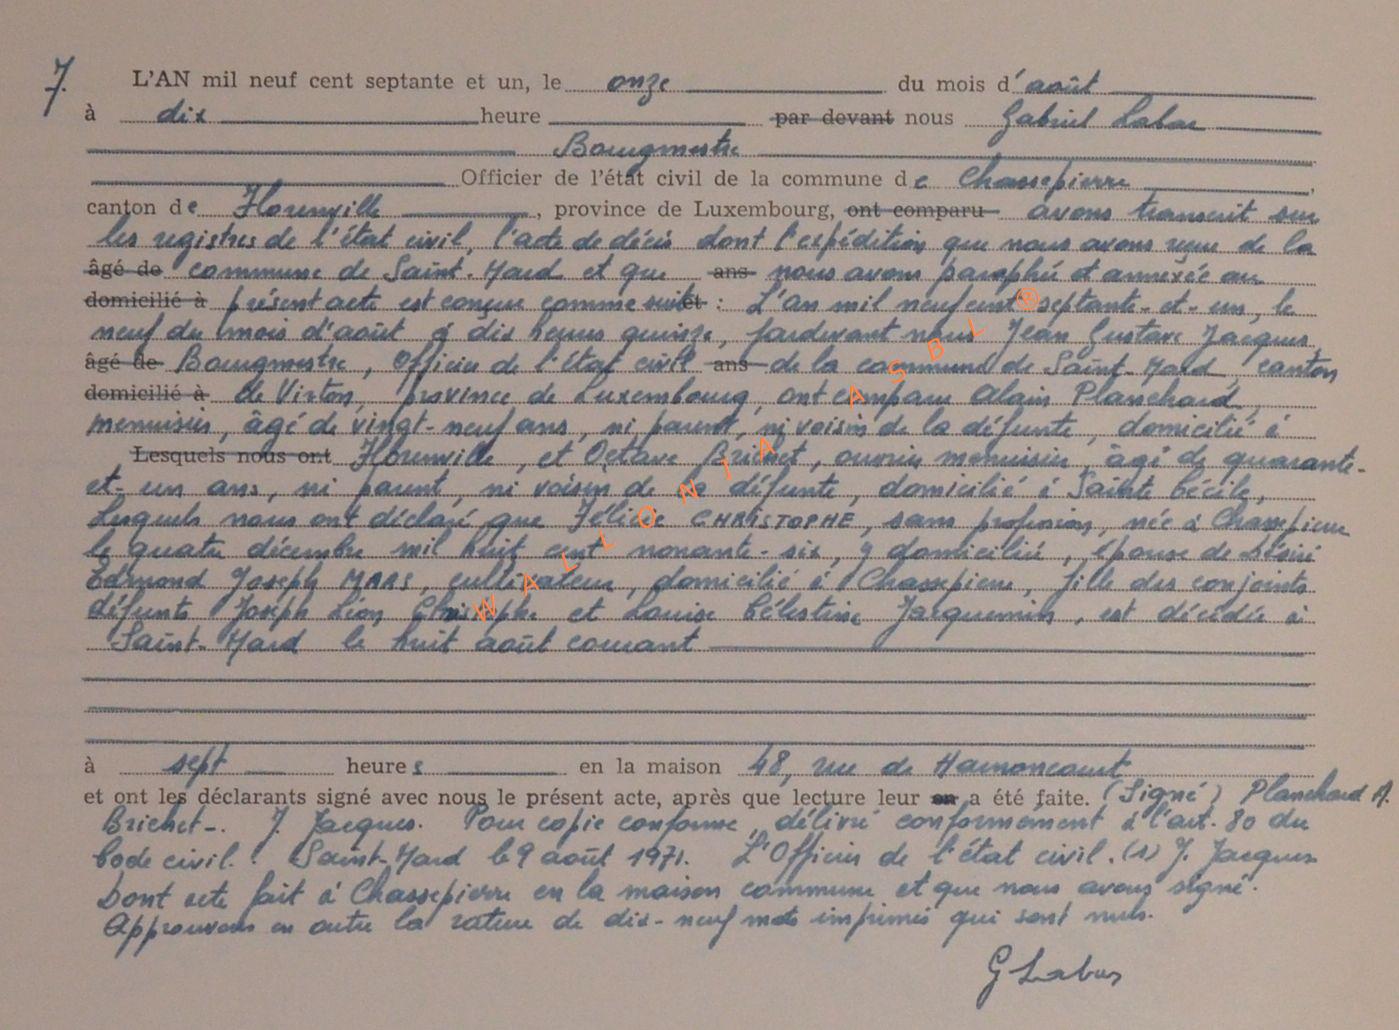 7. L'AN mil neuf cent septante et un, le onze du mois d'août
à dix heure par devant nous Gabriel Labar
Bourgmestre
Officier de l'état civil de la commune de Chassepierre,
canton de Florenville, province de Luxembourg, ont comparu avons transcrit sur
les registres de l'état civil, l'acte de décès dont l'expédition que nous avons reçue de la
âgé de commune de Saint-Mard et que ans nous avons paraphé et annexée au
domicilié à présent acte est conçue comme suit et : L'an mil neuf cent septante-et-un, le
neuf du mois d'août à dix heures quinze, pardevant nous Jean Gustave Jacques
âgé de Bourgmestre, Officier de l'état civil ans de la commune de Saint-Mard, canton
domicilié à de Virton, province de Luxembourg, ont comparu Alain Planchard,
menuisier, âgé de vingt-neuf ans, ni parent, ni voisin de la défunte, domicilié à
Lesquels nous ont Florenville, et Octave Brichet, ouvrier menuisier âgé de quarante-
et-un ans, ni parent, ni voisin de la défunte, domicilié à Sainte Cécile,
Lesquels nous ont déclaré que Félicie CHRISTOPHE, sans profession, née à Chassepierre
le quatre décembre mil huit cent nonante-six, y domiciliée, épouse de Désiré
Edmond Joseph MARS, cultivateur, domicilié à Chassepierre, fille des conjoints
défunts Joseph Léon Christophe et Louise Célestine Jacquemin, est décédée à
Saint-Mard le huit août courant
à sept heures en la maison 48, rue de Harnoncourt
et ont les déclarants signé avec nous le présent acte, après que lecture leur en a été faite. (Signé) Planchard A.
Brichet-. J. Jacques. Pour copie conforme, délivré conformément à l'art. 80 du
Code civil. Saint-Mard le 9 août 1971. L'Officier de l'état civil. (s) J. Jacques
Dont acte fait à Chassepierre en la maison commune et que nous avons signé.
Approuvons en outre la rature de dix-neuf mots imprimés qui sont nuls.
G Labar
WALLONIA ASBL ®